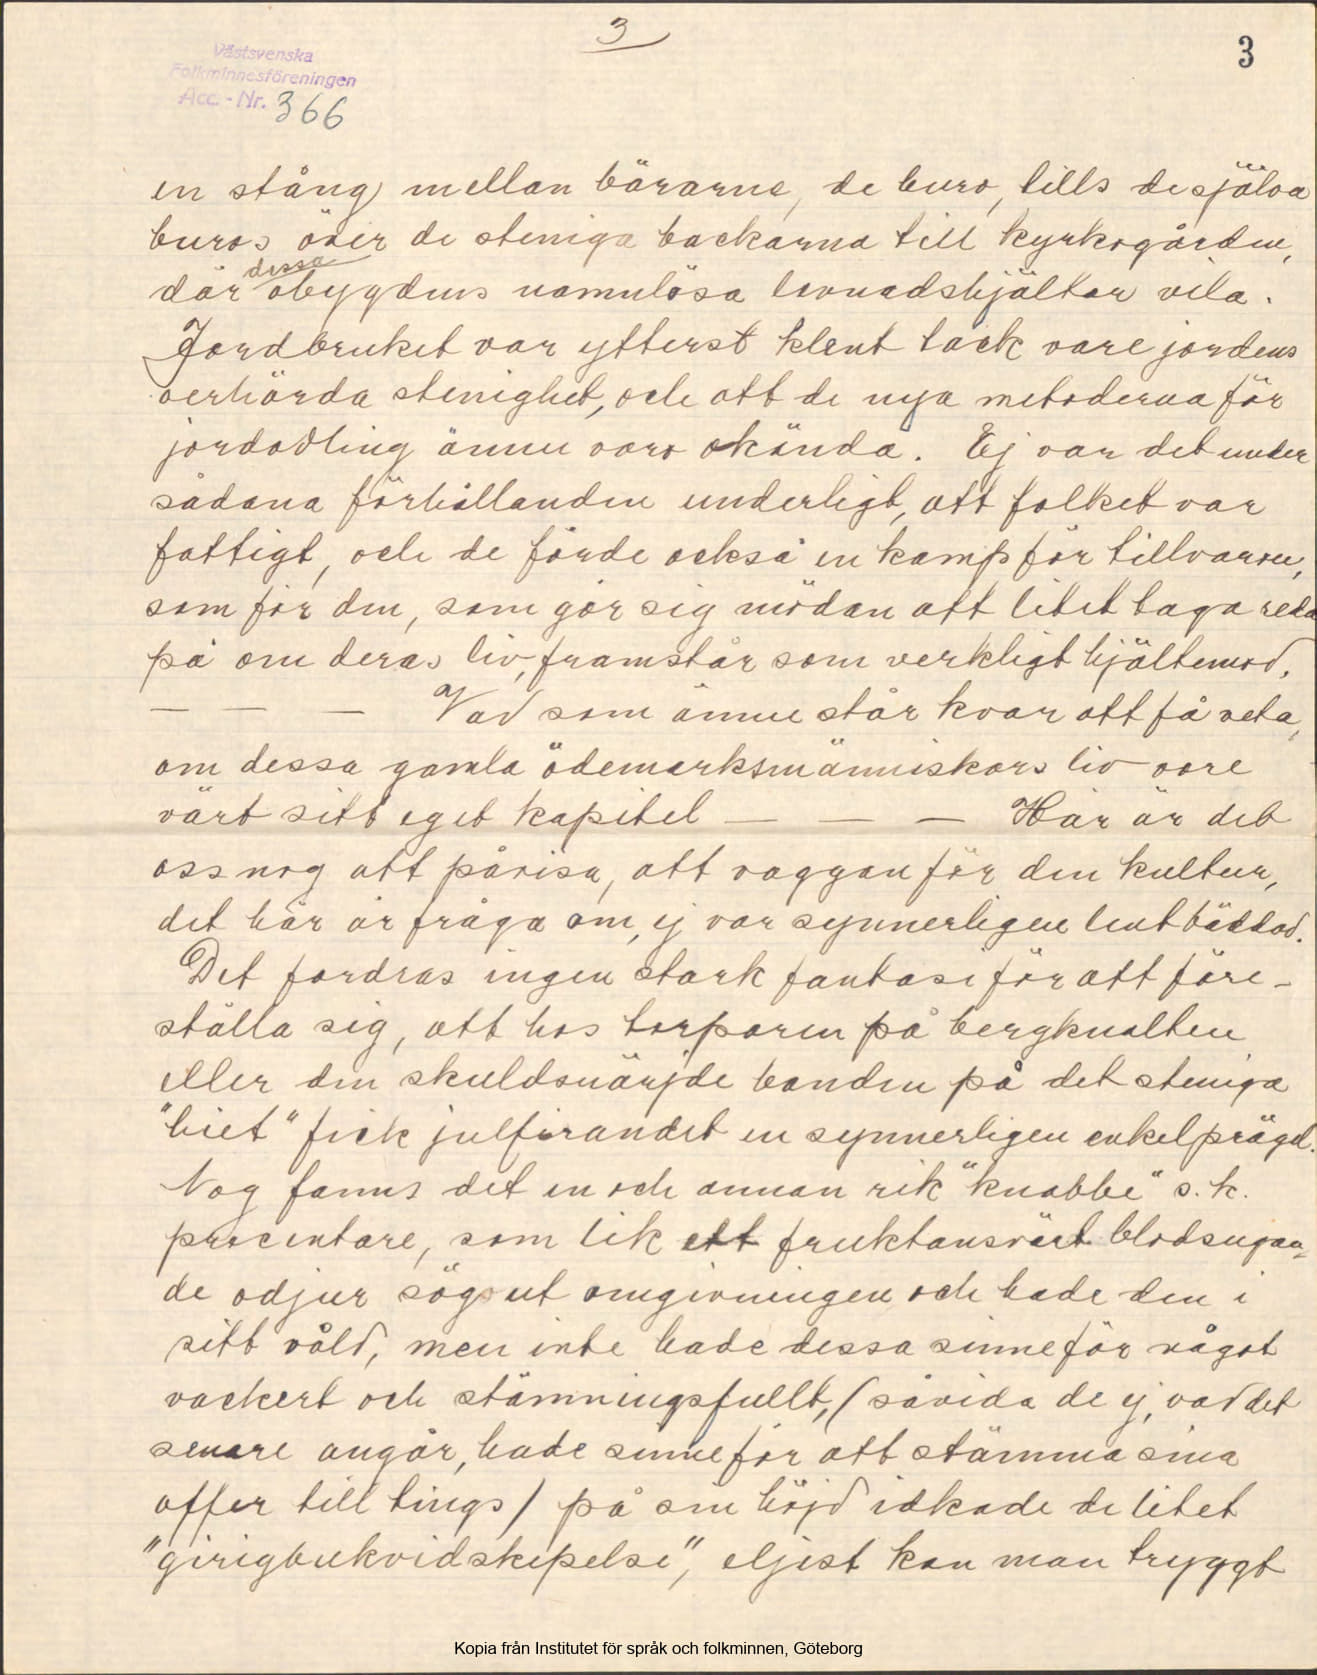 3
3
Västsvenska
Folkminnesföreningen
Acc. - Nr. 366
en stång) mellan bärarne, de buro, tills de själva
buros över de steniga backarna till kyrkogården,
dessa
där obygdens namnlösa levnadshjältar vila.
Jordbruket var ytterst klent tack vare jordens
oerhörda stenighet, och att de nya metoderna för
jordodling ännu voro okända. Ej var det under
sådana förhållanden underligt, att folket var
fattigt, och de förde också en kamp för tillvaron,
som för den, som gör sig mödan att litet taga reda
på om deras liv, framstår som verkligt hjältemod.
— — — Vad som ännu står kvar att få veta,
om dessa gamla ödemarksmänniskors liv vore
värt sitt eget kapitel — — — Här är det
oss nog att påvisa, att vaggan för den kultur,
det här är fråga om, ej var synnerligen lent bäddad.
Det fordras ingen stark fantasi för att före-
ställa sig, att hos torparen på bergknalten
eller den skuldsnärjde bonden på det steniga
"biet" fick julfirandet en synnerligen enkel prägel.
Nog fanns det en och annan rik "knabbe" s.k.
procentare, som lik ett fruktansvärt blodsugan-
de odjur sög ut omgivningen och hade den i
sitt våld, men inte hade dessa sinne för något
vackert och stämningsfullt, (såvida de ej, vad det
senare angår, hade sinne för att stämma sina
offer till tings) på sin höjd idkade de litet
"girigbukvidskepelse", eljest kan man tryggt
Kopia från Institutet för språk och folkminnen, Göteborg